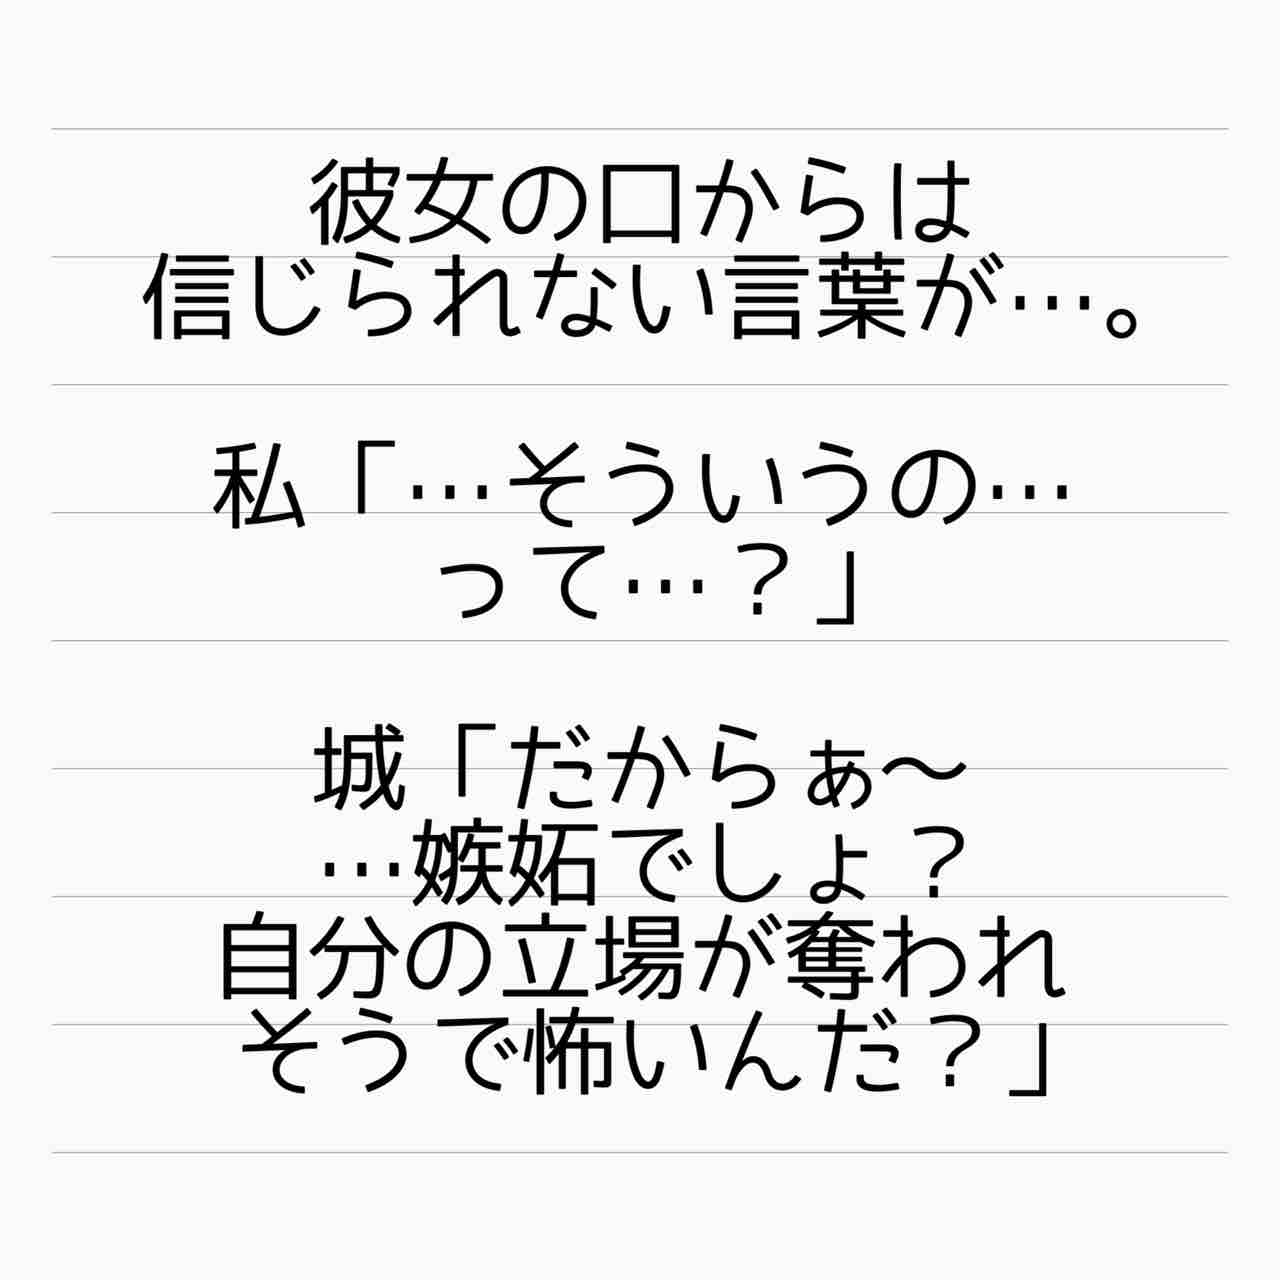 彼女の口からは
信じられない言葉が…。
私「…そういうの…
って…？」
城「だからぁ〜
…嫉妬でしょ？
自分の立場が奪われ
そうで怖いんだ？」